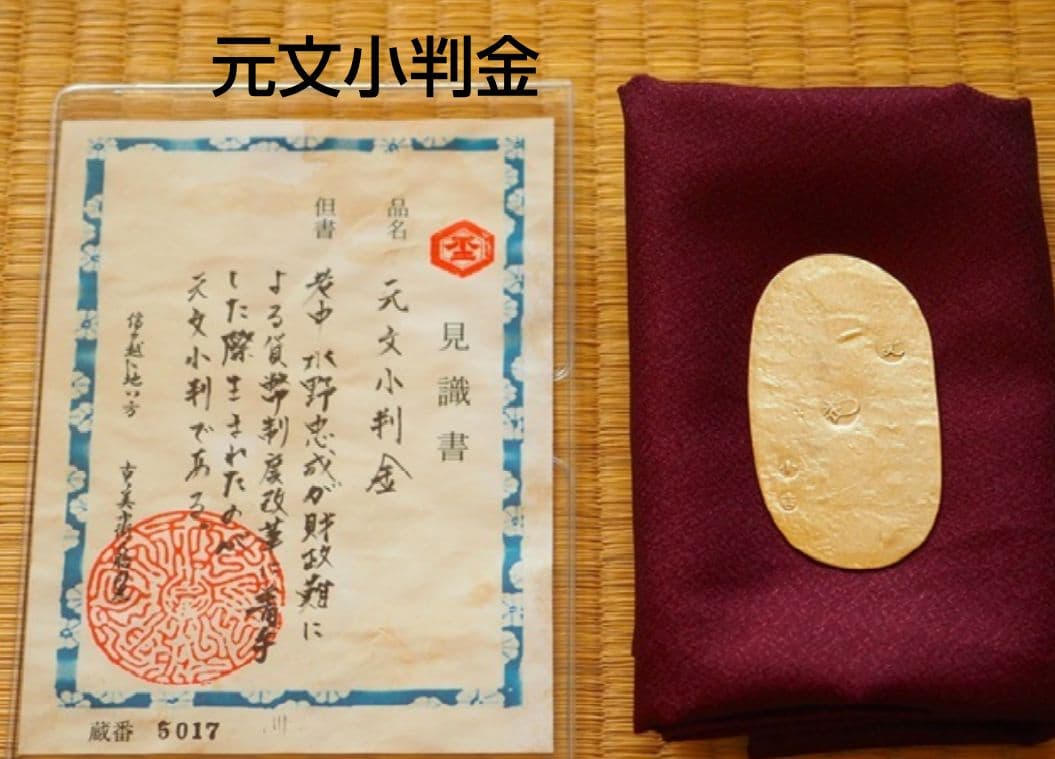 元文小判金
見識書
品名 元文小判金
但書 老中 水野忠成が財政難に
よる貨幣制度改革に着手
した際生まれたのが
元文小判である。
蔵番 5017